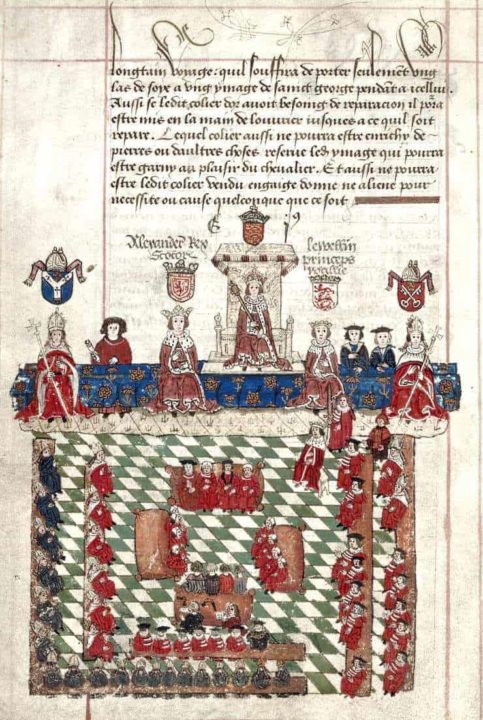 longtain voyage: quil souffira de porter seulement ung
las de soye a ung ymage de sainct george pendāt a icellui.
Aussi se ledit colier dor avoit besoing de reparacion il pora
estre mis en la main de louvrier iusques a ce quil soit
repare. Lequel colier aussi ne pourra estre enrichy de
pierres ou daultres choses reserve led ymage qui pourra
estre garny au plaisir du chevalier. Et aussi ne pourra
estre ledit colier vendu engaige donne ne aliene pour
necessite ou cause quelconque que ce soit
Alexander Rex
Scotorę
Lewellin
princeps